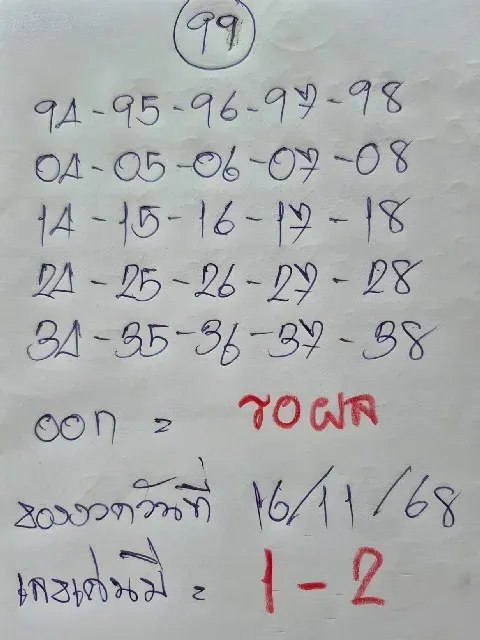 99
94-95-96-97-98
04-05-06-07-08
14-15-16-17-18
24-25-26-27-28
34-35-36-37-38
ออก = รอผล
ของงวดวันที่ 16/11/68
เลขเด่นมี = 1-2